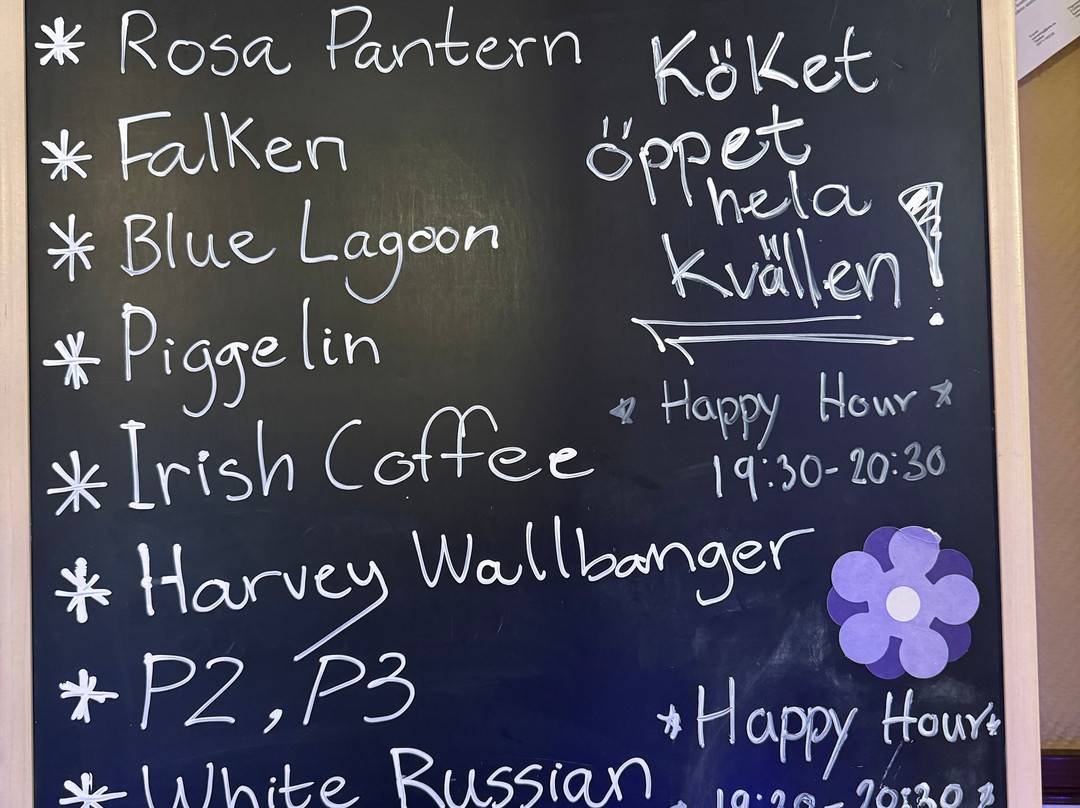 * Rosa Pantern
* Falken
* Blue Lagoon
* Piggelin
* Irish Coffee
* Harvey Wallbanger
* P2, P3
* White Russian
Köket
öppet
hela
kvällen!
* Happy Hour *
19:30-20:30
* Happy Hour *